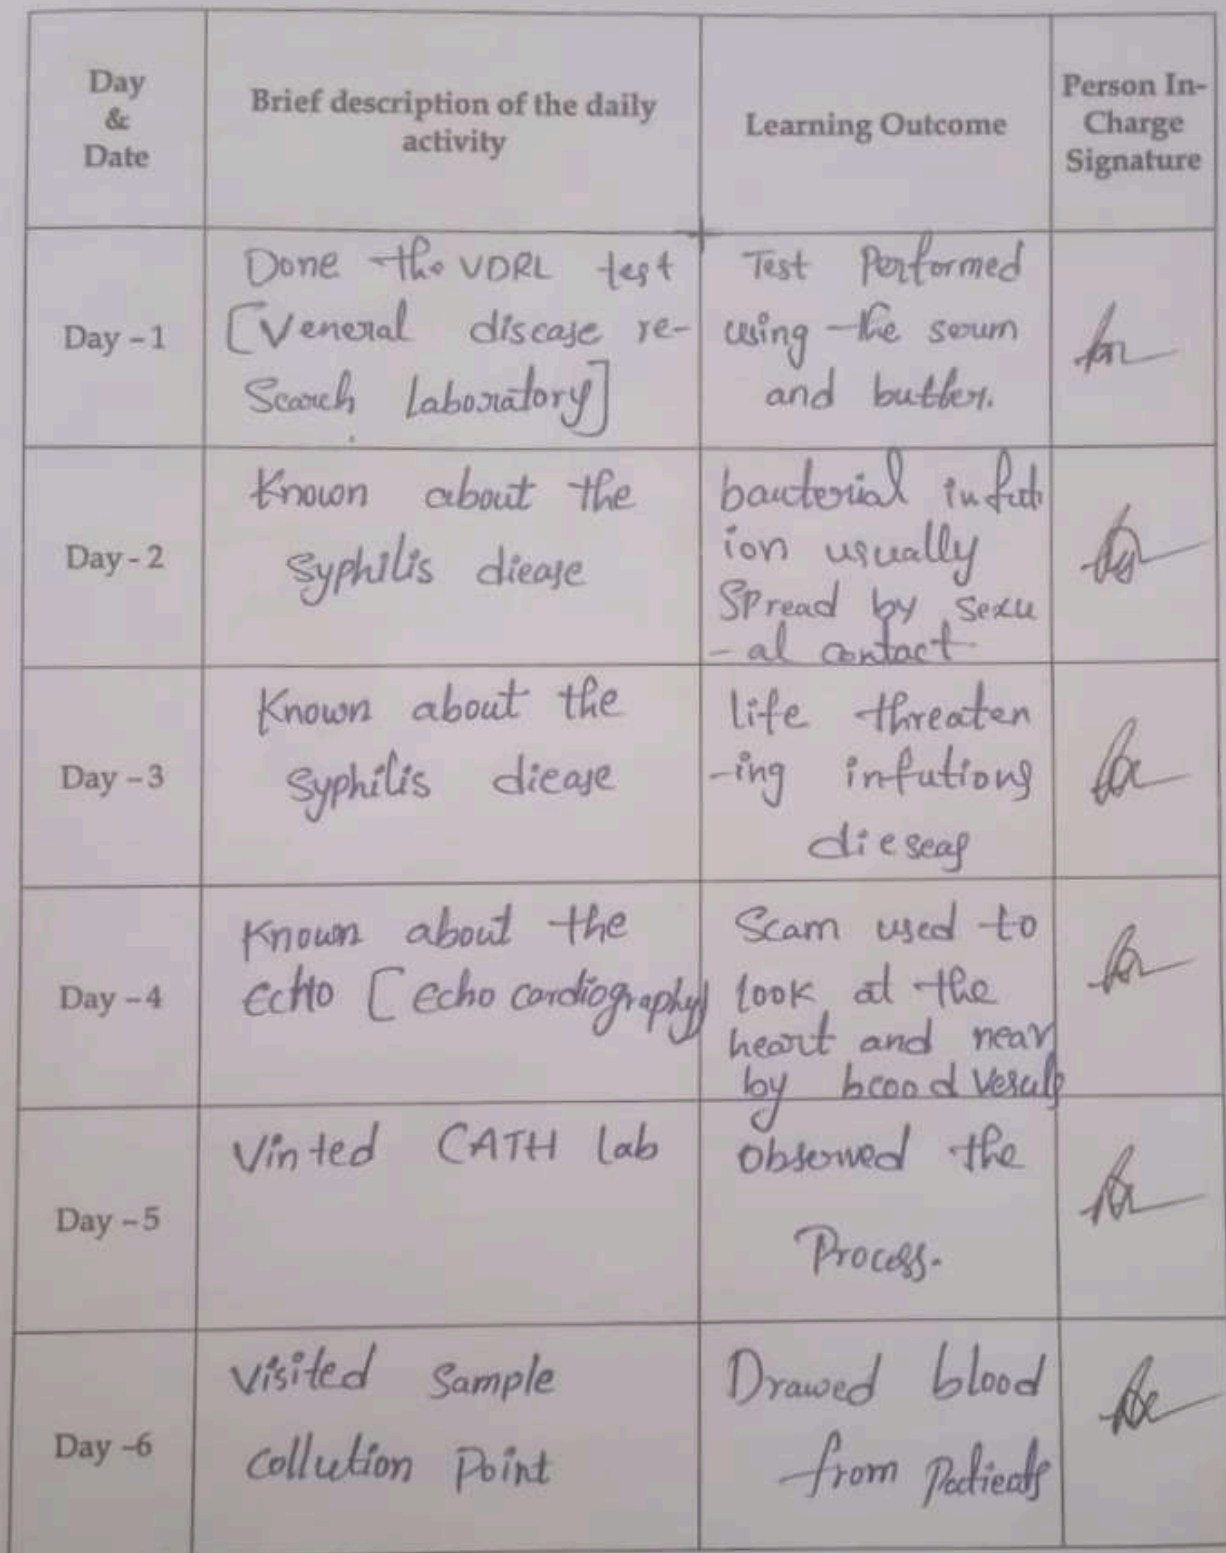 Day
&
Date
Brief description of the daily
activity
Learning Outcome
Person In-
Charge
Signature
Day - 1
Done the VDRL test
[Veneral disease re-
Search Laboratory]
Test Performed
using the serum
and butter.
Day - 2
Known about the
Syphilis diease
bacterial infect
ion usually
Spread by sexu
-al contact
Day - 3
Known about the
Syphilis diease
life threaten
-ing infutious
dieseas
Day - 4
Known about the
ECHO [echo cardiography]
Scam used to
look at the
heart and near
by blood
Day - 5
Vinted CATH lab
Observed the
Process.
Day -6
Visited Sample
Collection Point
Drawed blood
from Patients